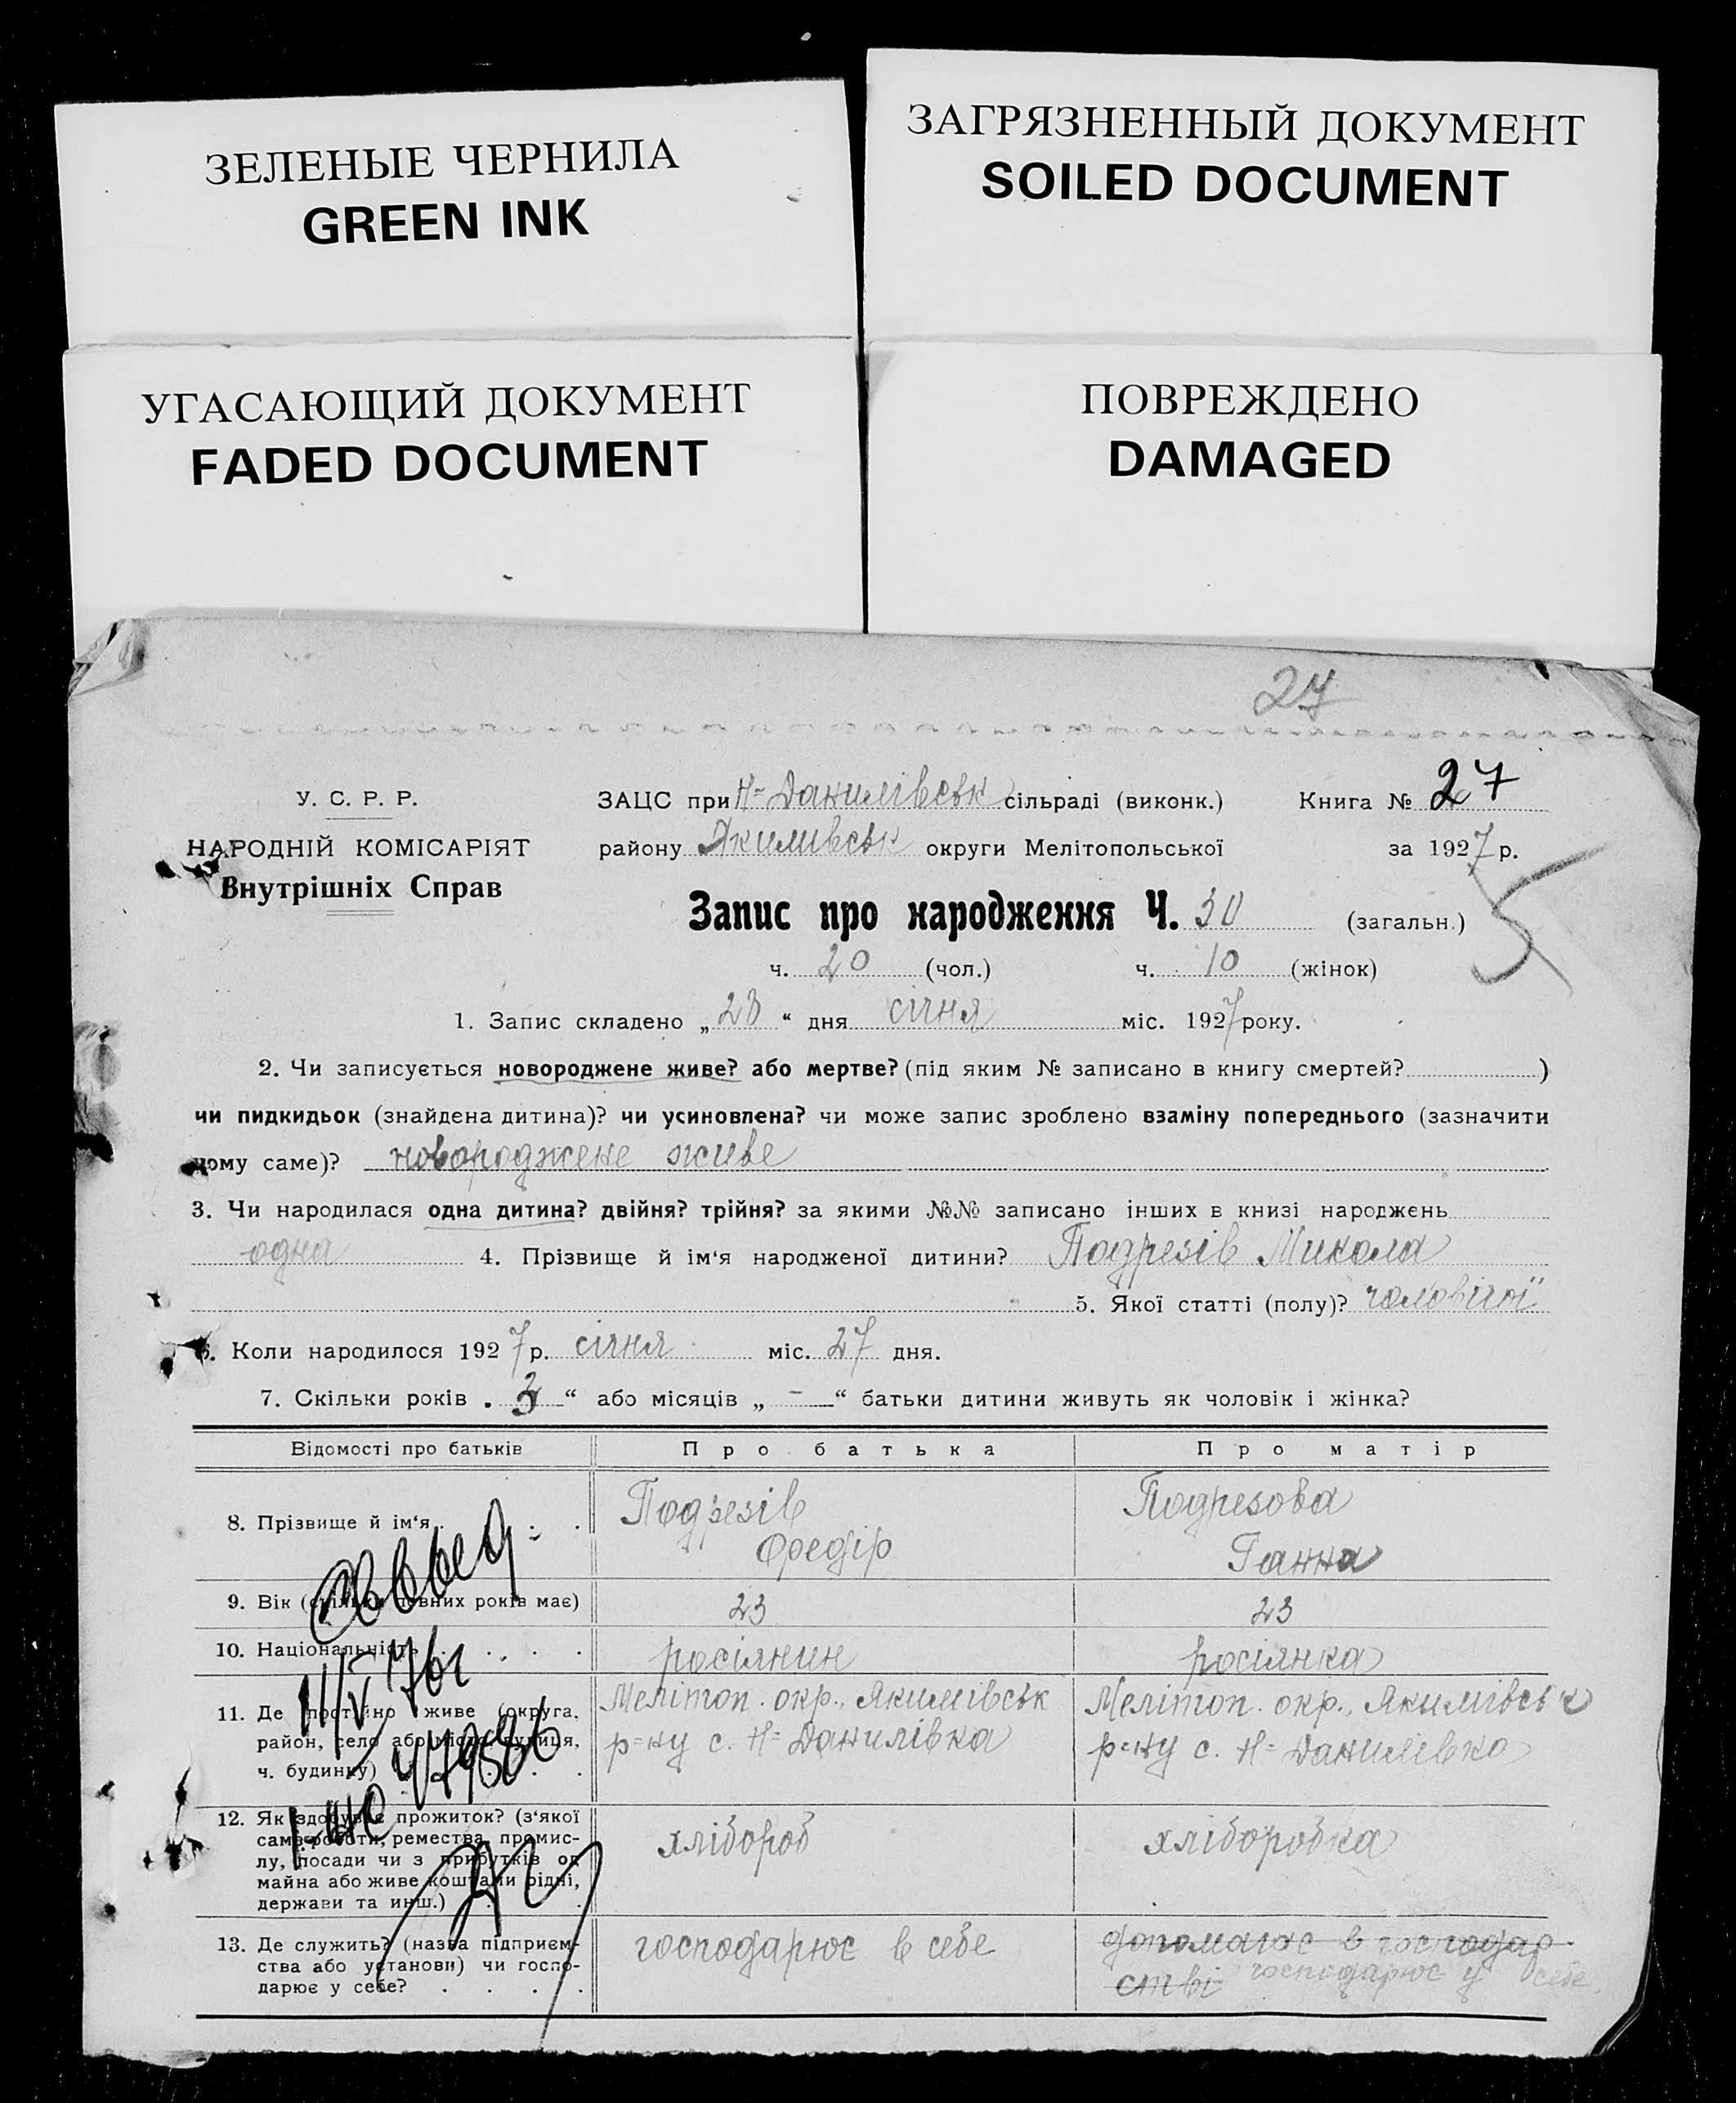 ЗЕЛЕНЫЕ ЧЕРНИЛА
GREEN INK
ЗАГРЯЗНЕННЫЙ ДОКУМЕНТ
SOILED DOCUMENT
УГАСАЮЩИЙ ДОКУМЕНТ
FADED DOCUMENT
ПОВРЕЖДЕНО
DAMAGED
27
У. С. Р. Р.
НАРОДНІЙ КОМІСАРІЯТ
Внутрішніх Справ
ЗАЦС при Н-Данилівськ сільраді (виконк.) Книга № 27
району Якимівськ округи Мелітопольської за 1927 р.
Запис про народження Ч. 30 (загальн.) 5
ч. 20 (чол.) ч. 10 (жінок)
1. Запис складено „28“ дня січня міс. 1927 року.
2. Чи записується новороджене живе? або мертве? (під яким № записано в книгу смертей? )
чи пидкидьок (знайдена дитина)? чи усиновлена? чи може запис зроблено взаміну попереднього (зазначити
чому саме)? новороджене живе
3. Чи народилася одна дитина? двійня? трійня? за якими №№ записано інших в книзі народжень
одна 4. Прізвище й ім‘я народженої дитини? Подрезів Микола
5. Якої статті (полу)? чоловічої
6. Коли народилося 1927 р. січня міс. 27 дня.
7. Скільки років „3“ або місяців „-“ батьки дитини живуть як чоловік і жінка?
Відомості про батьків Про батька Про матір
8. Прізвище й ім‘я Подрезів Федір Подрезова Ганна
9. Вік (скільки повних років має) 23 23
10. Національність росіянин росіянка
11. Де постійно живе (округа, район, село або місто, вулиця, ч. будинку) Мелітоп. окр., Якимівськ р-ну с. Н-Данилівка Мелітоп. окр., Якимівськ р-ну с. Н-Данилівка
12. Як здобуває прожиток? (з‘якої саме роботи, ремества, промис-
лу, посади чи з прибутків од майна або живе коштами рідні, держави та инш.) хлібороб хліборобка
13. Де служить? (назва підприєм-
ства або установи) чи госпо-
дарює у себе? господарює в себе допомагає в господар-
стві господарює у себе